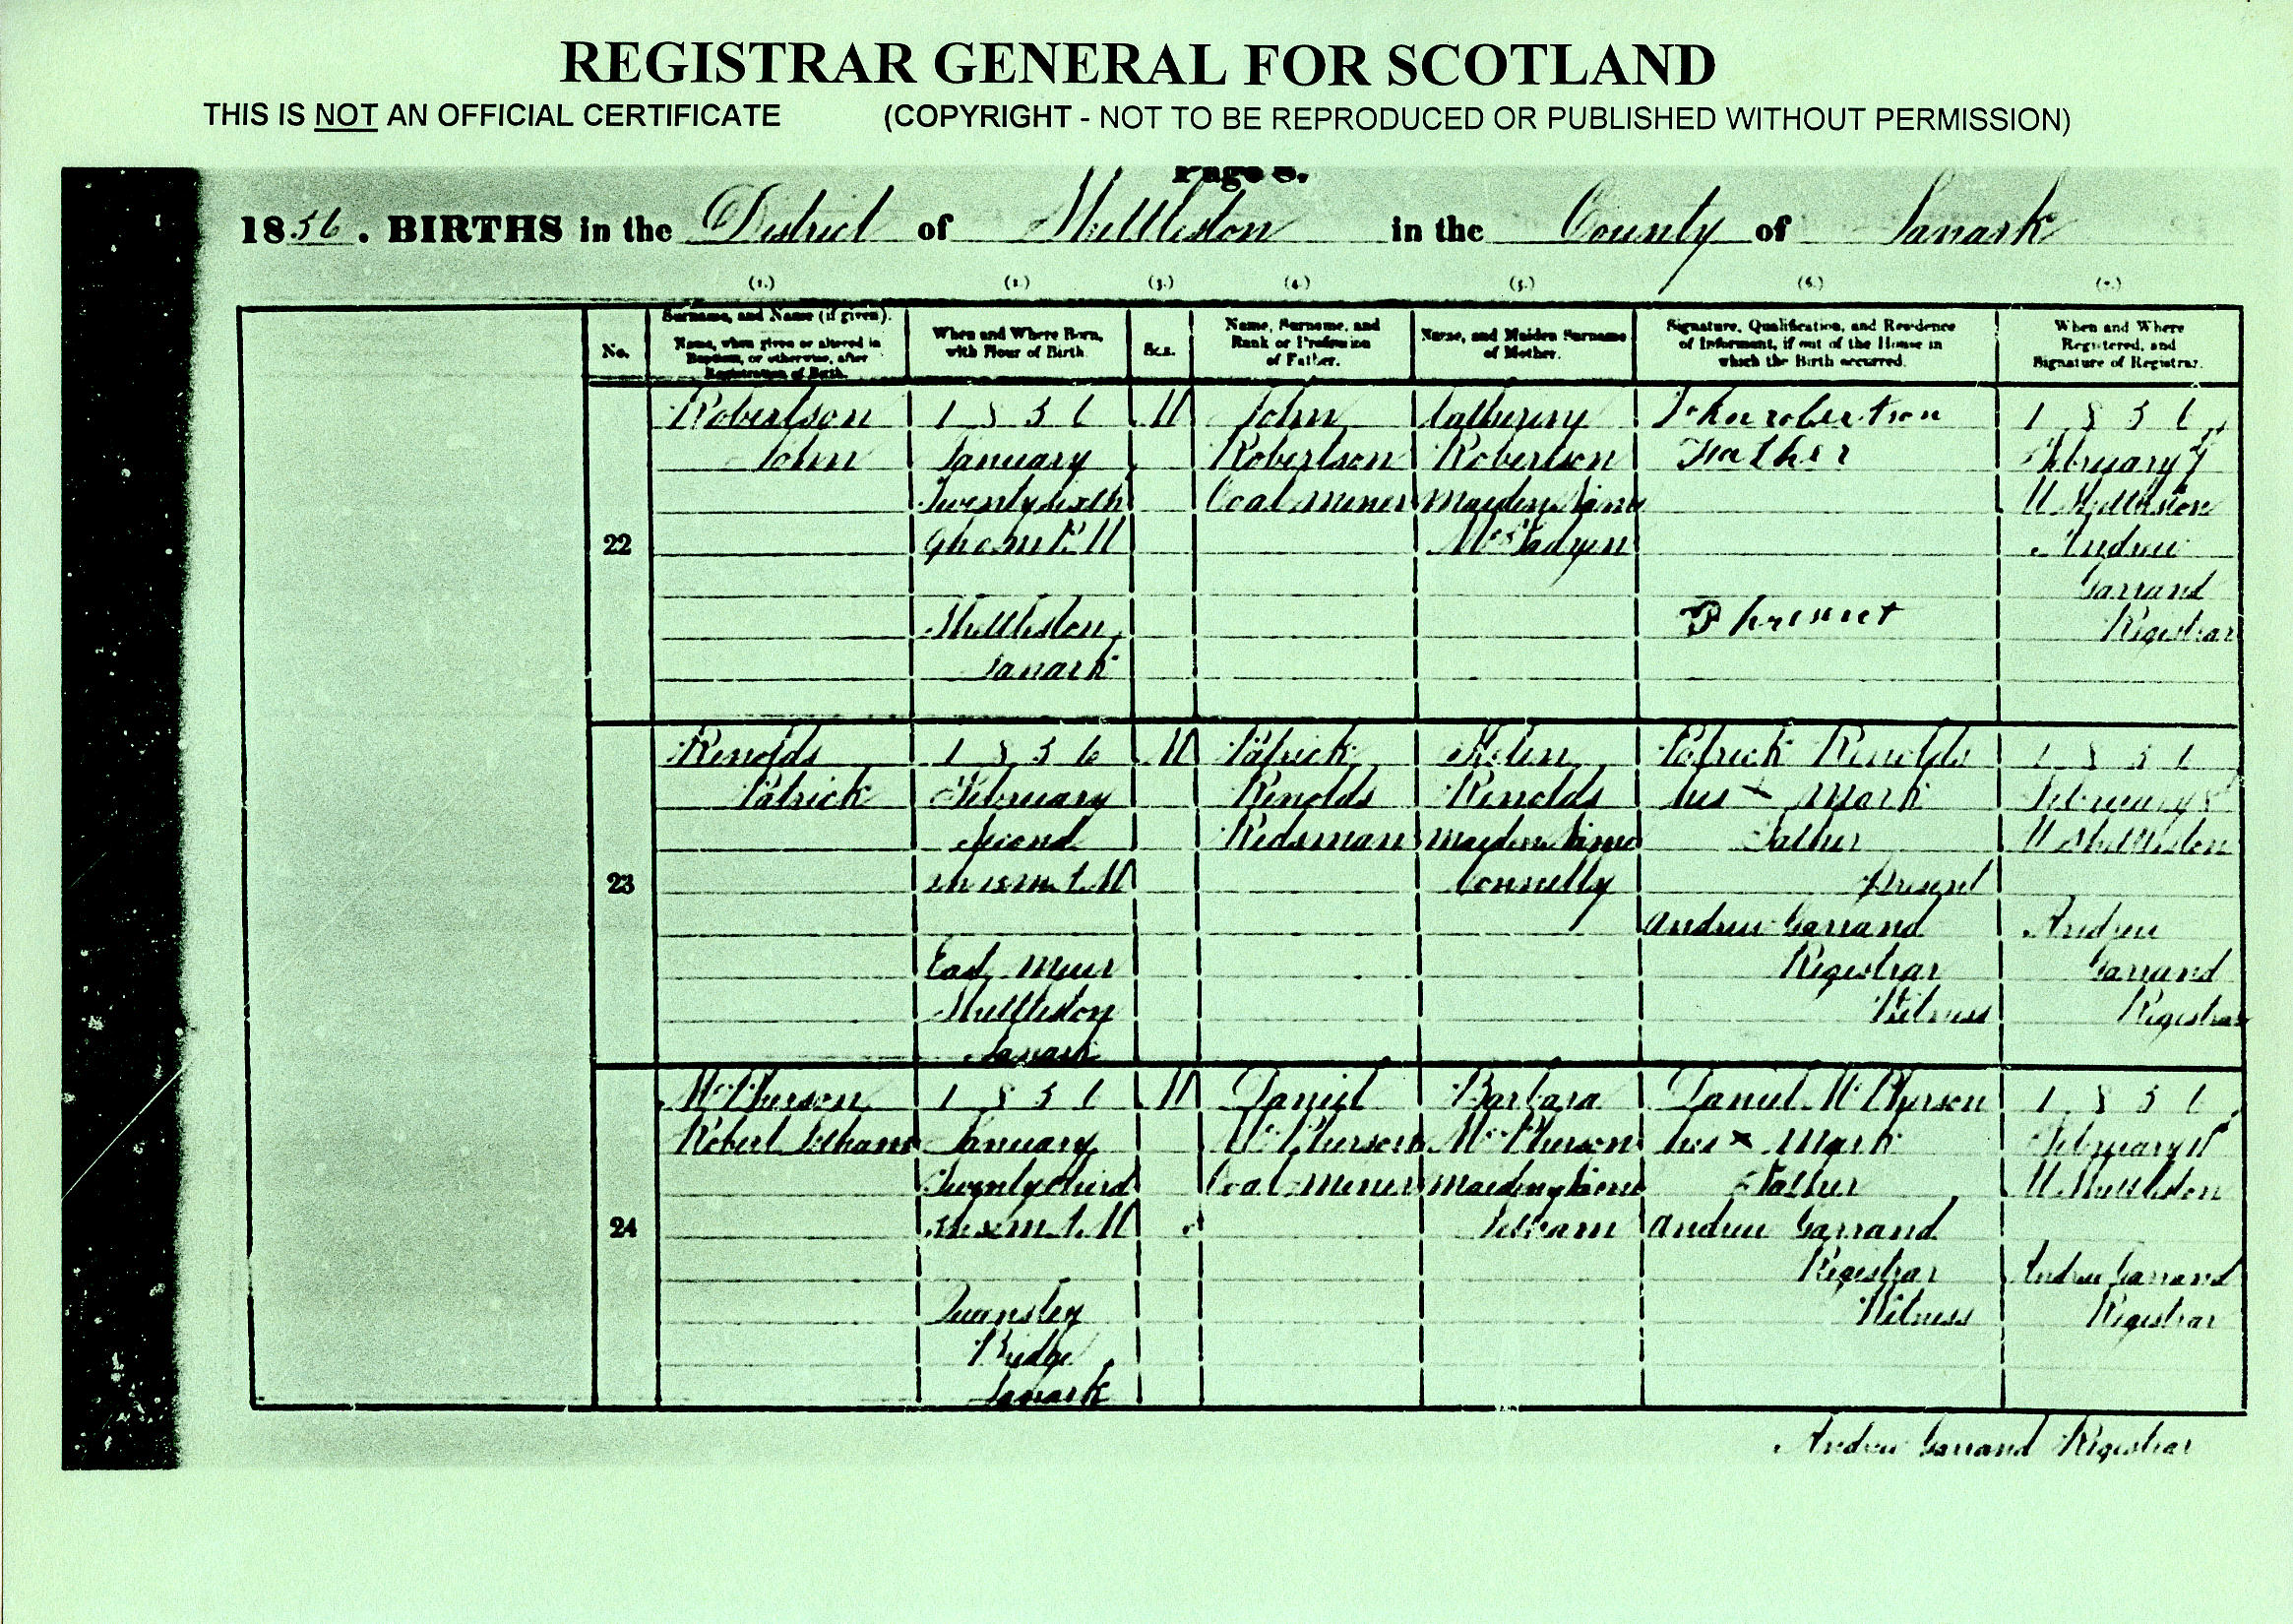 REGISTRAR GENERAL FOR SCOTLAND
THIS IS NOT AN OFFICIAL CERTIFICATE (COPYRIGHT - NOT TO BE REPRODUCED OR PUBLISHED WITHOUT PERMISSION)
Page 8.
1856. BIRTHS in the District of Shettleston in the County of Lanark
(1.) (2.) (3.) (4.) (5.) (6.) (7.)
No.
Surname, and Name (if given).
Name, when given or altered in
Baptism, or otherwise, after
Registration of Birth.
When and Where Born,
with Hour of Birth.
Sex.
Name, Surname, and
Rank or Profession
of Father.
Name, and Maiden Surname
of Mother.
Signature, Qualification, and Residence
of Informant, if out of the House in
which the Birth occurred.
When and Where
Registered, and
Signature of Registrar.
22
Robertson
John
1856
January
Twenty sixth
P.M
Shettleston
Lanark
M
John
Robertson
Coal Miner
Robertson
Maiden Name
McFadyen
John robertson
Father
1856
February
Shettleston
Andrew
Garrand
Registrar
23
Renolds
Patrick
1856
February
Second
East Muir
Shettleston
Lanark
M
Patrick
Renolds
Helen
Renolds
Maiden Name
Connelly
Patrick Renolds
his x Mark
Father
Present
Andrew Garrand
Registrar
Witness
1856
February
Shettleston
Andrew
Garrand
Registrar
24
McPherson
Robert
1856
January
Twenty third
Bridge
Lanark
M
Daniel
McPherson
Coal Miner
Barbara
McPherson
Maiden Name
Daniel McPherson
his x Mark
Father
Andrew Garrand
Registrar
Witness
1856
February
Shettleston
Andrew Garrand
Registrar
Andrew Garrand Registrar